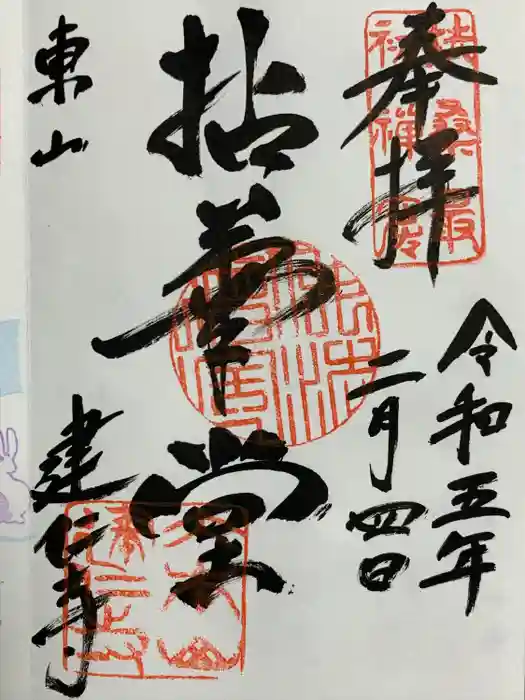 奉拝
令和五年
二月四日
拈華堂
東山
建仁寺